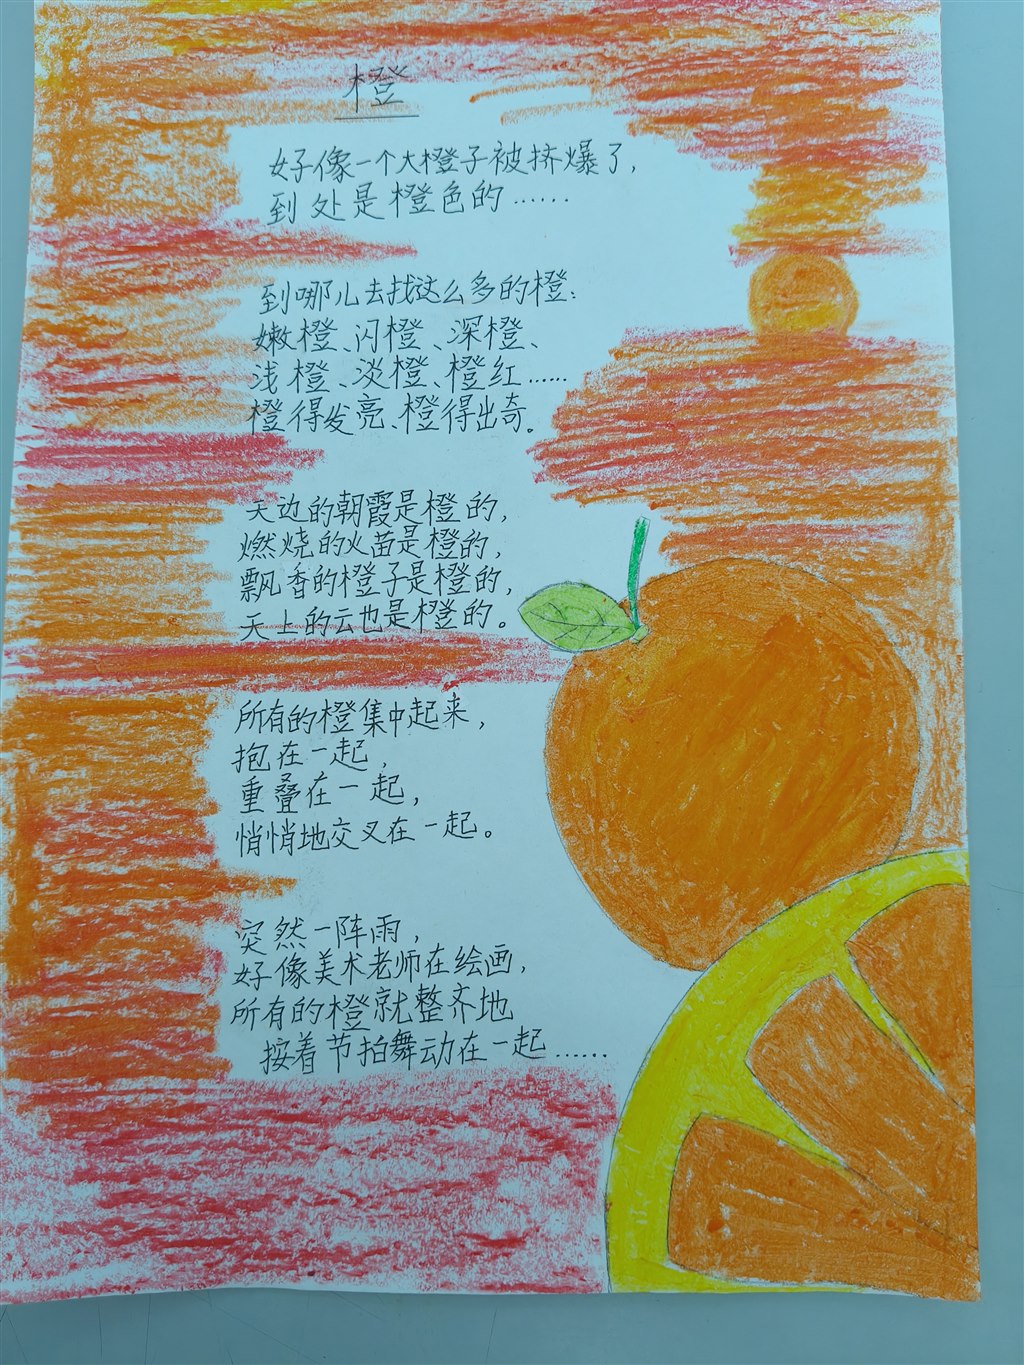 橙
好像一个大橙子被挤爆了，
到处是橙色的……
到哪儿去找这么多的橙：
嫩橙、闪橙、深橙、
浅橙、淡橙、橙红……
橙得发亮、橙得出奇。
天边的朝霞是橙的，
燃烧的火苗是橙的，
飘香的橙子是橙的，
天上的云也是橙的。
所有的橙集中起来，
抱在一起，
重叠在一起，
悄悄地交叉在一起。
突然一阵雨，
好像美术老师在绘画，
所有的橙就整齐地
按着节拍舞动在一起……